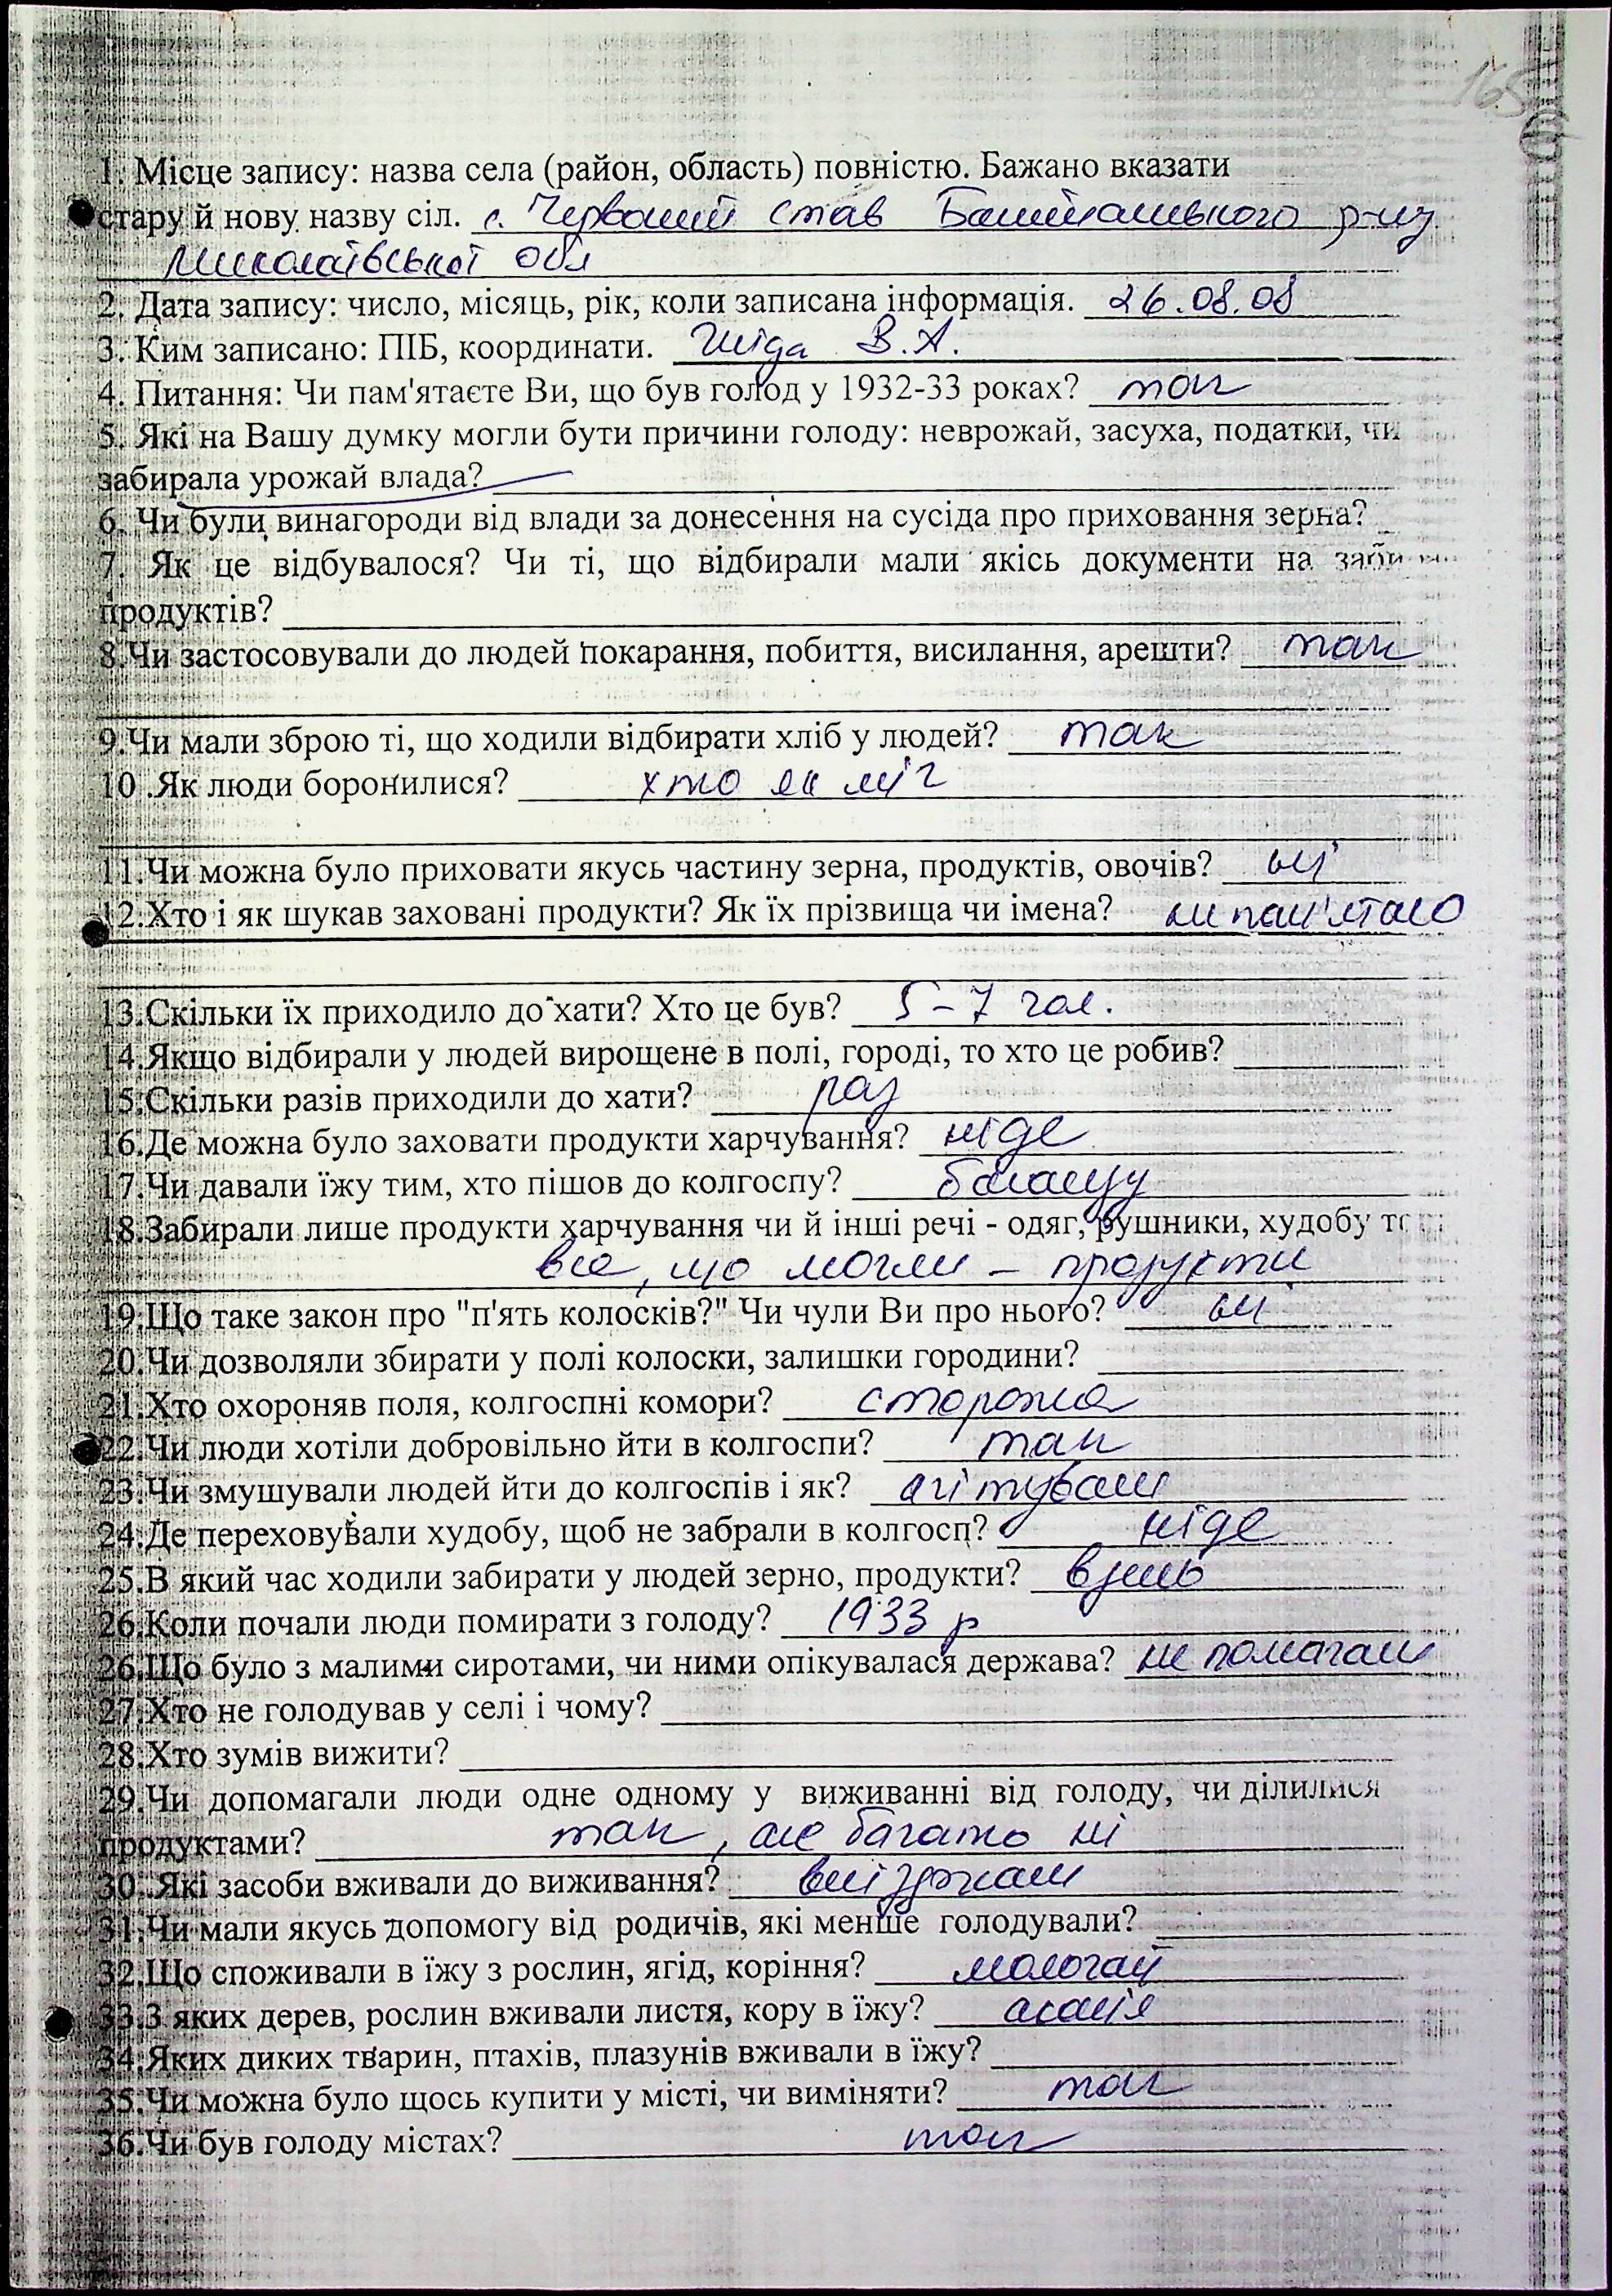 165
1. Місце запису: назва села (район, область) повністю. Бажано вказати
стару й нову назву сіл. с. Червоний Став Баштанського р-ну
Миколаївської обл
2. Дата запису: число, місяць, рік, коли записана інформація. 26.08.08
3. Ким записано: ПІБ, координати. В.А.
4. Питання: Чи пам'ятаєте Ви, що був голод у 1932-33 роках? так
5. Які на Вашу думку могли бути причини голоду: неврожай, засуха, податки, чи
забирала урожай влада?
6. Чи були винагороди від влади за донесення на сусіда про приховання зерна?
7. Як це відбувалося? Чи ті, що відбирали мали якісь документи на
продуктів?
8.Чи застосовували до людей покарання, побиття, висилання, арешти? так
9.Чи мали зброю ті, що ходили відбирати хліб у людей? так
10 .Як люди боронилися? хто як міг
11.Чи можна було приховати якусь частину зерна, продуктів, овочів? ні
12.Хто і як шукав заховані продукти? Як їх прізвища чи імена? не пам'ятаю
13.Скільки їх приходило до хати? Хто це був? 5-7 чол.
14.Якщо відбирали у людей вирощене в полі, городі, то хто це робив?
15.Скільки разів приходили до хати? раз
16.Де можна було заховати продукти харчування? ніде
17.Чи давали їжу тим, хто пішов до колгоспу? баланду
18.Забирали лише продукти харчування чи й інші речі - одяг, рушники, худобу
все, що могли - продукти
19.Що таке закон про "п'ять колосків?" Чи чули Ви про нього? ні
20.Чи дозволяли збирати у полі колоски, залишки городини?
21.Хто охороняв поля, колгоспні комори? сторожа
22.Чи люди хотіли добровільно йти в колгоспи? так
23.Чи змушували людей йти до колгоспів і як? агітували
24.Де переховували худобу, щоб не забрали в колгосп? ніде
25.В який час ходили забирати у людей зерно, продукти? вдень
26.Коли почали люди помирати з голоду? 1933 р
26.Що було з малими сиротами, чи ними опікувалася держава? не помагали
27.Хто не голодував у селі і чому?
28.Хто зумів вижити?
29.Чи допомагали люди одне одному у виживанні від голоду, чи ділилися
продуктами? так, але багато ні
30. Які засоби вживали до виживання? виїзджали
31.Чи мали якусь допомогу від родичів, які менше голодували?
32.Що споживали в їжу з рослин, ягід, коріння? молочай
33.З яких дерев, рослин вживали листя, кору в їжу? акація
34.Яких диких тварин, птахів, плазунів вживали в їжу?
35.Чи можна було щось купити у місті, чи виміняти? так
36.Чи був голоду містах? так